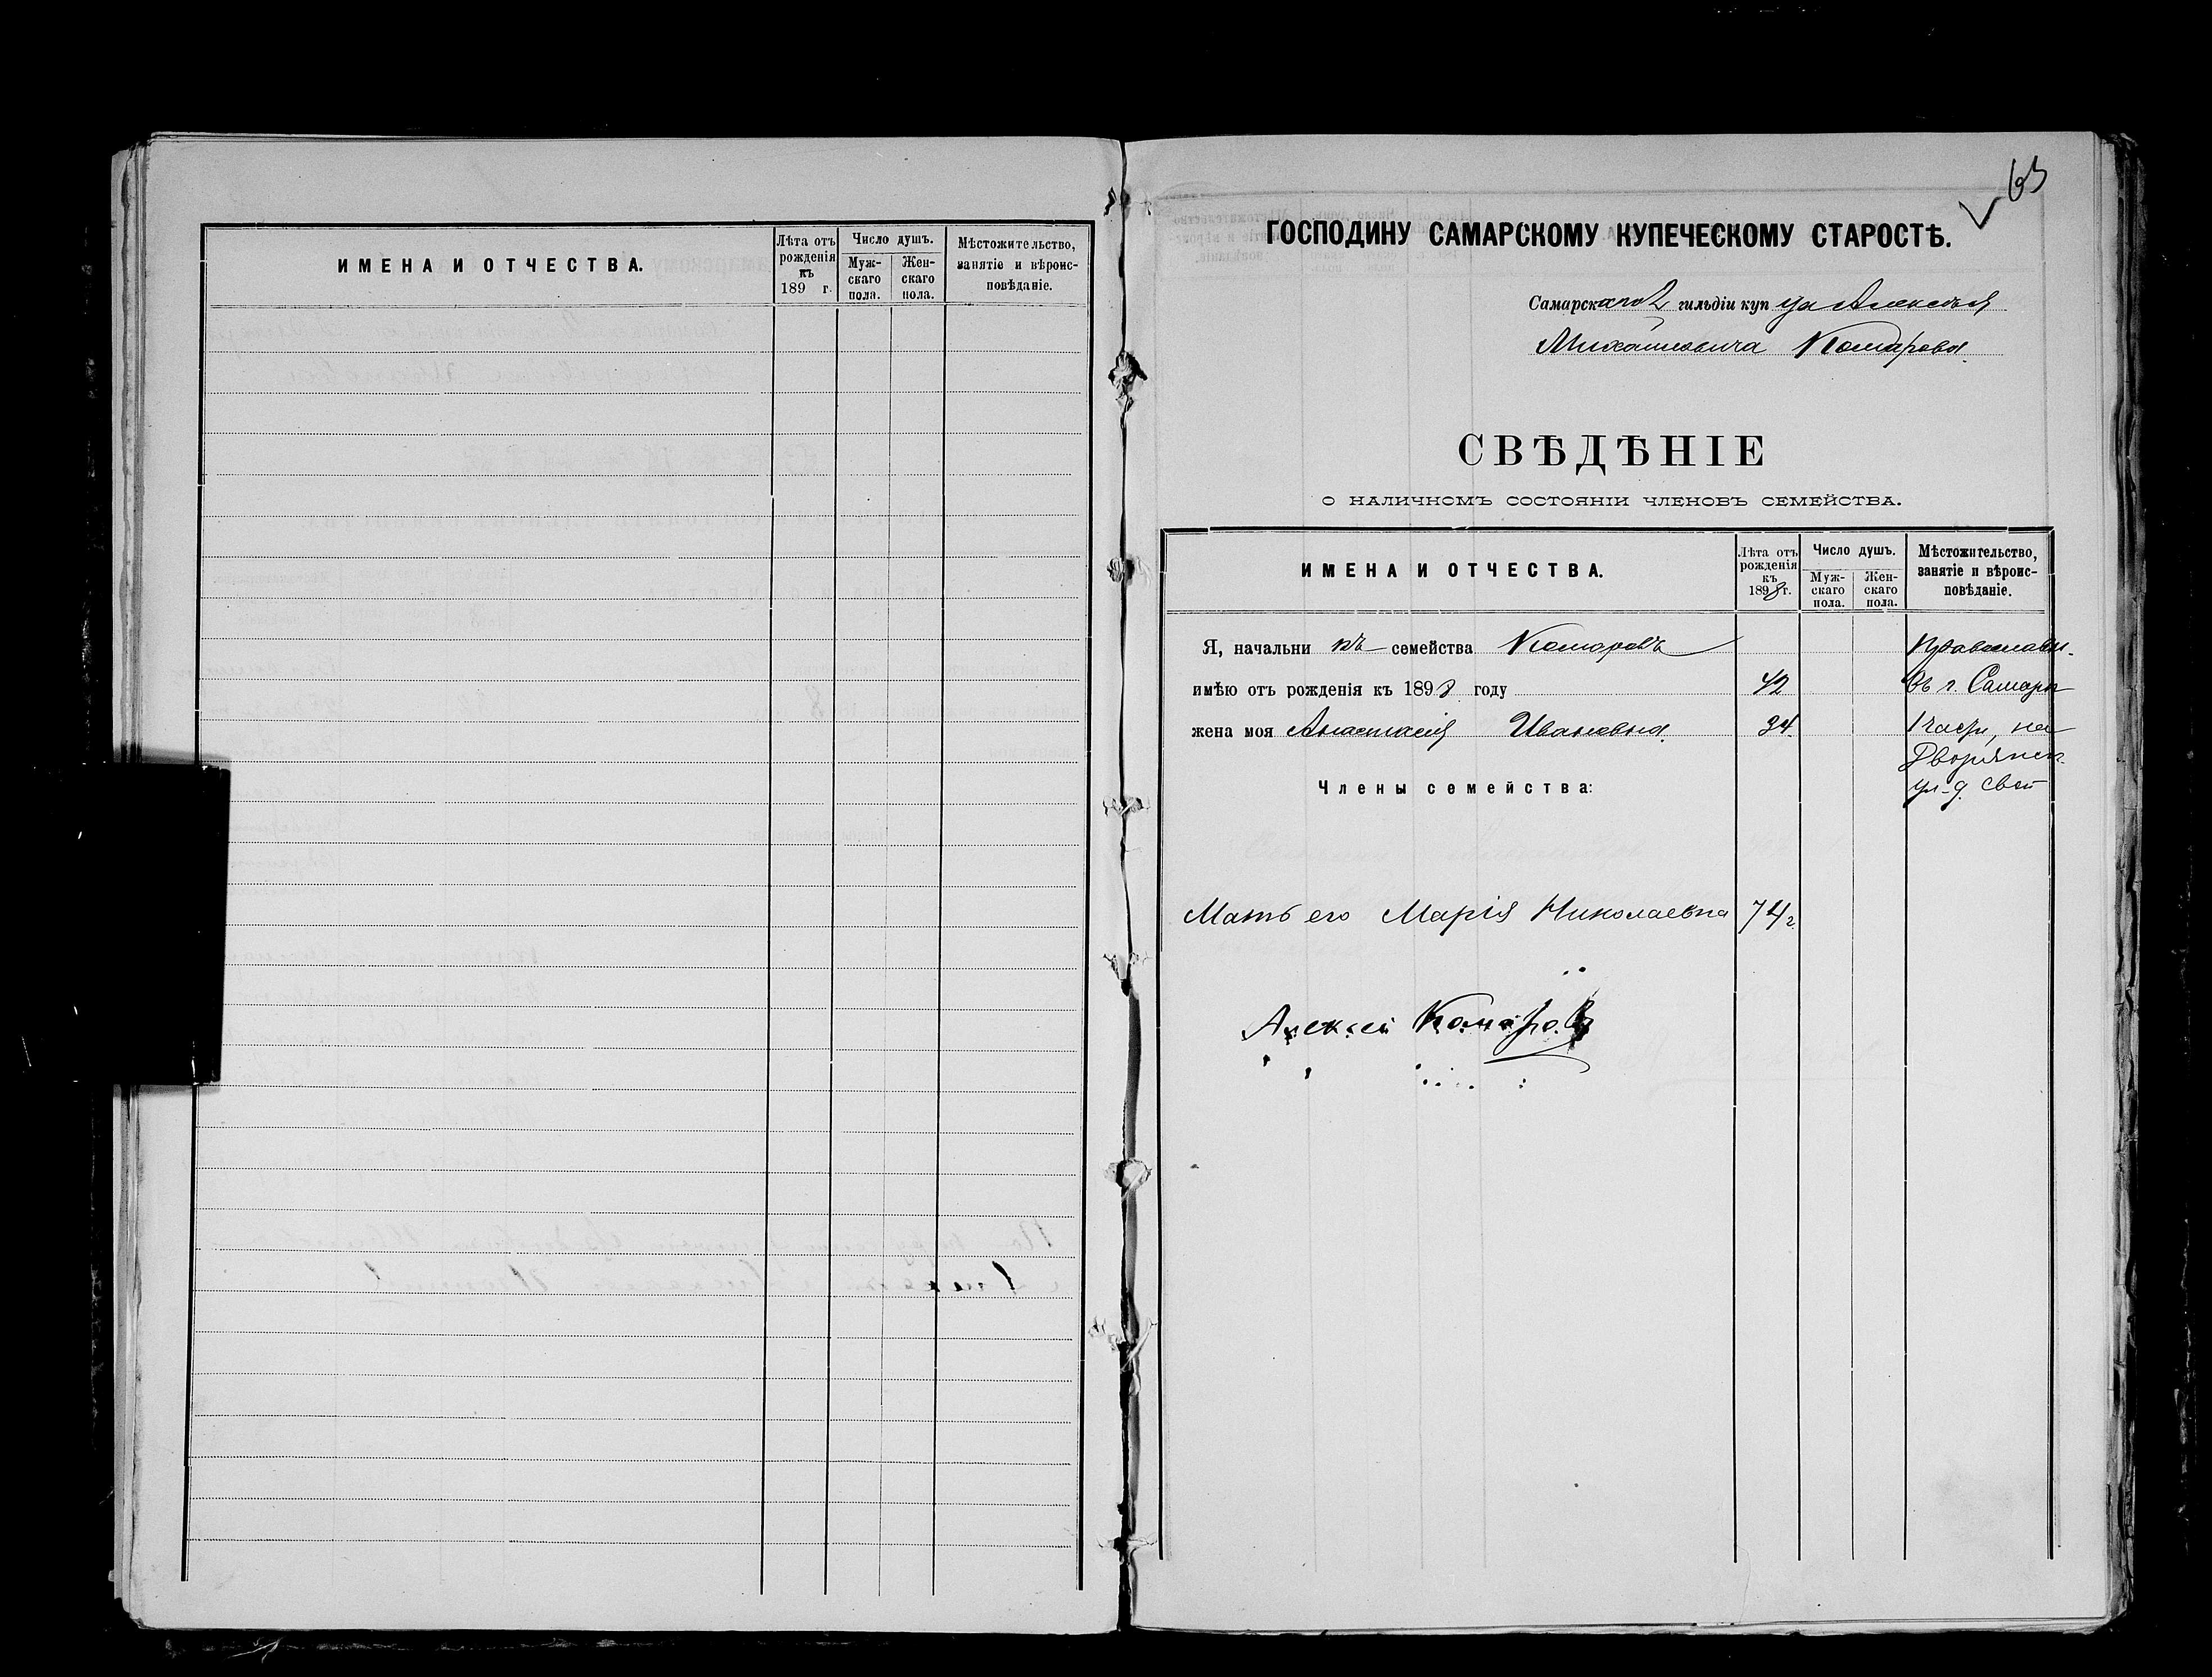 ИМЕНА И ОТЧЕСТВА.
Лѣта отъ
рожденія
къ
189 г.
Число душъ.
Муж-
скаго
пола.
Жен-
скаго
пола.
Мѣстожительство,
занятіе и вѣроис-
повѣданіе.
63
ГОСПОДИНУ САМАРСКОМУ КУПЕЧЕСКОМУ СТАРОСТѢ.
Самарскаго 2 гильдіи купца Алексѣя
Михайловича Комарова.
СВѢДѢНІЕ
О НАЛИЧНОМЪ СОСТОЯНІИ ЧЛЕНОВЪ СЕМЕЙСТВА.
ИМЕНА И ОТЧЕСТВА.
Лѣта отъ
рожденія
къ
1898 г.
Число душъ.
Муж-
скаго
пола.
Жен-
скаго
пола.
Мѣстожительство,
занятіе и вѣроис-
повѣданіе.
Я, начальникъ семейства Комаровъ Православн.
имѣю отъ рожденія къ 1898 году 42 въ г. Самарѣ
жена моя Анастасія Ивановна. 34. 1 части, на
Дворянск.
Члены семейства: ул. д. свой
Мать его Марія Николаевна 74 г.
Алексѣй Комаровъ